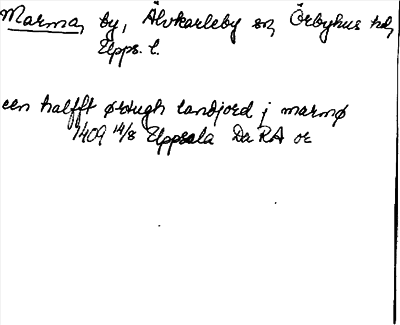 Marma, by, Älvkarleby sn, Örbyhus hd,
Upps. l.
een halfft ørtugh landjord j marmø
1409 14/8 Uppsala Da RA or